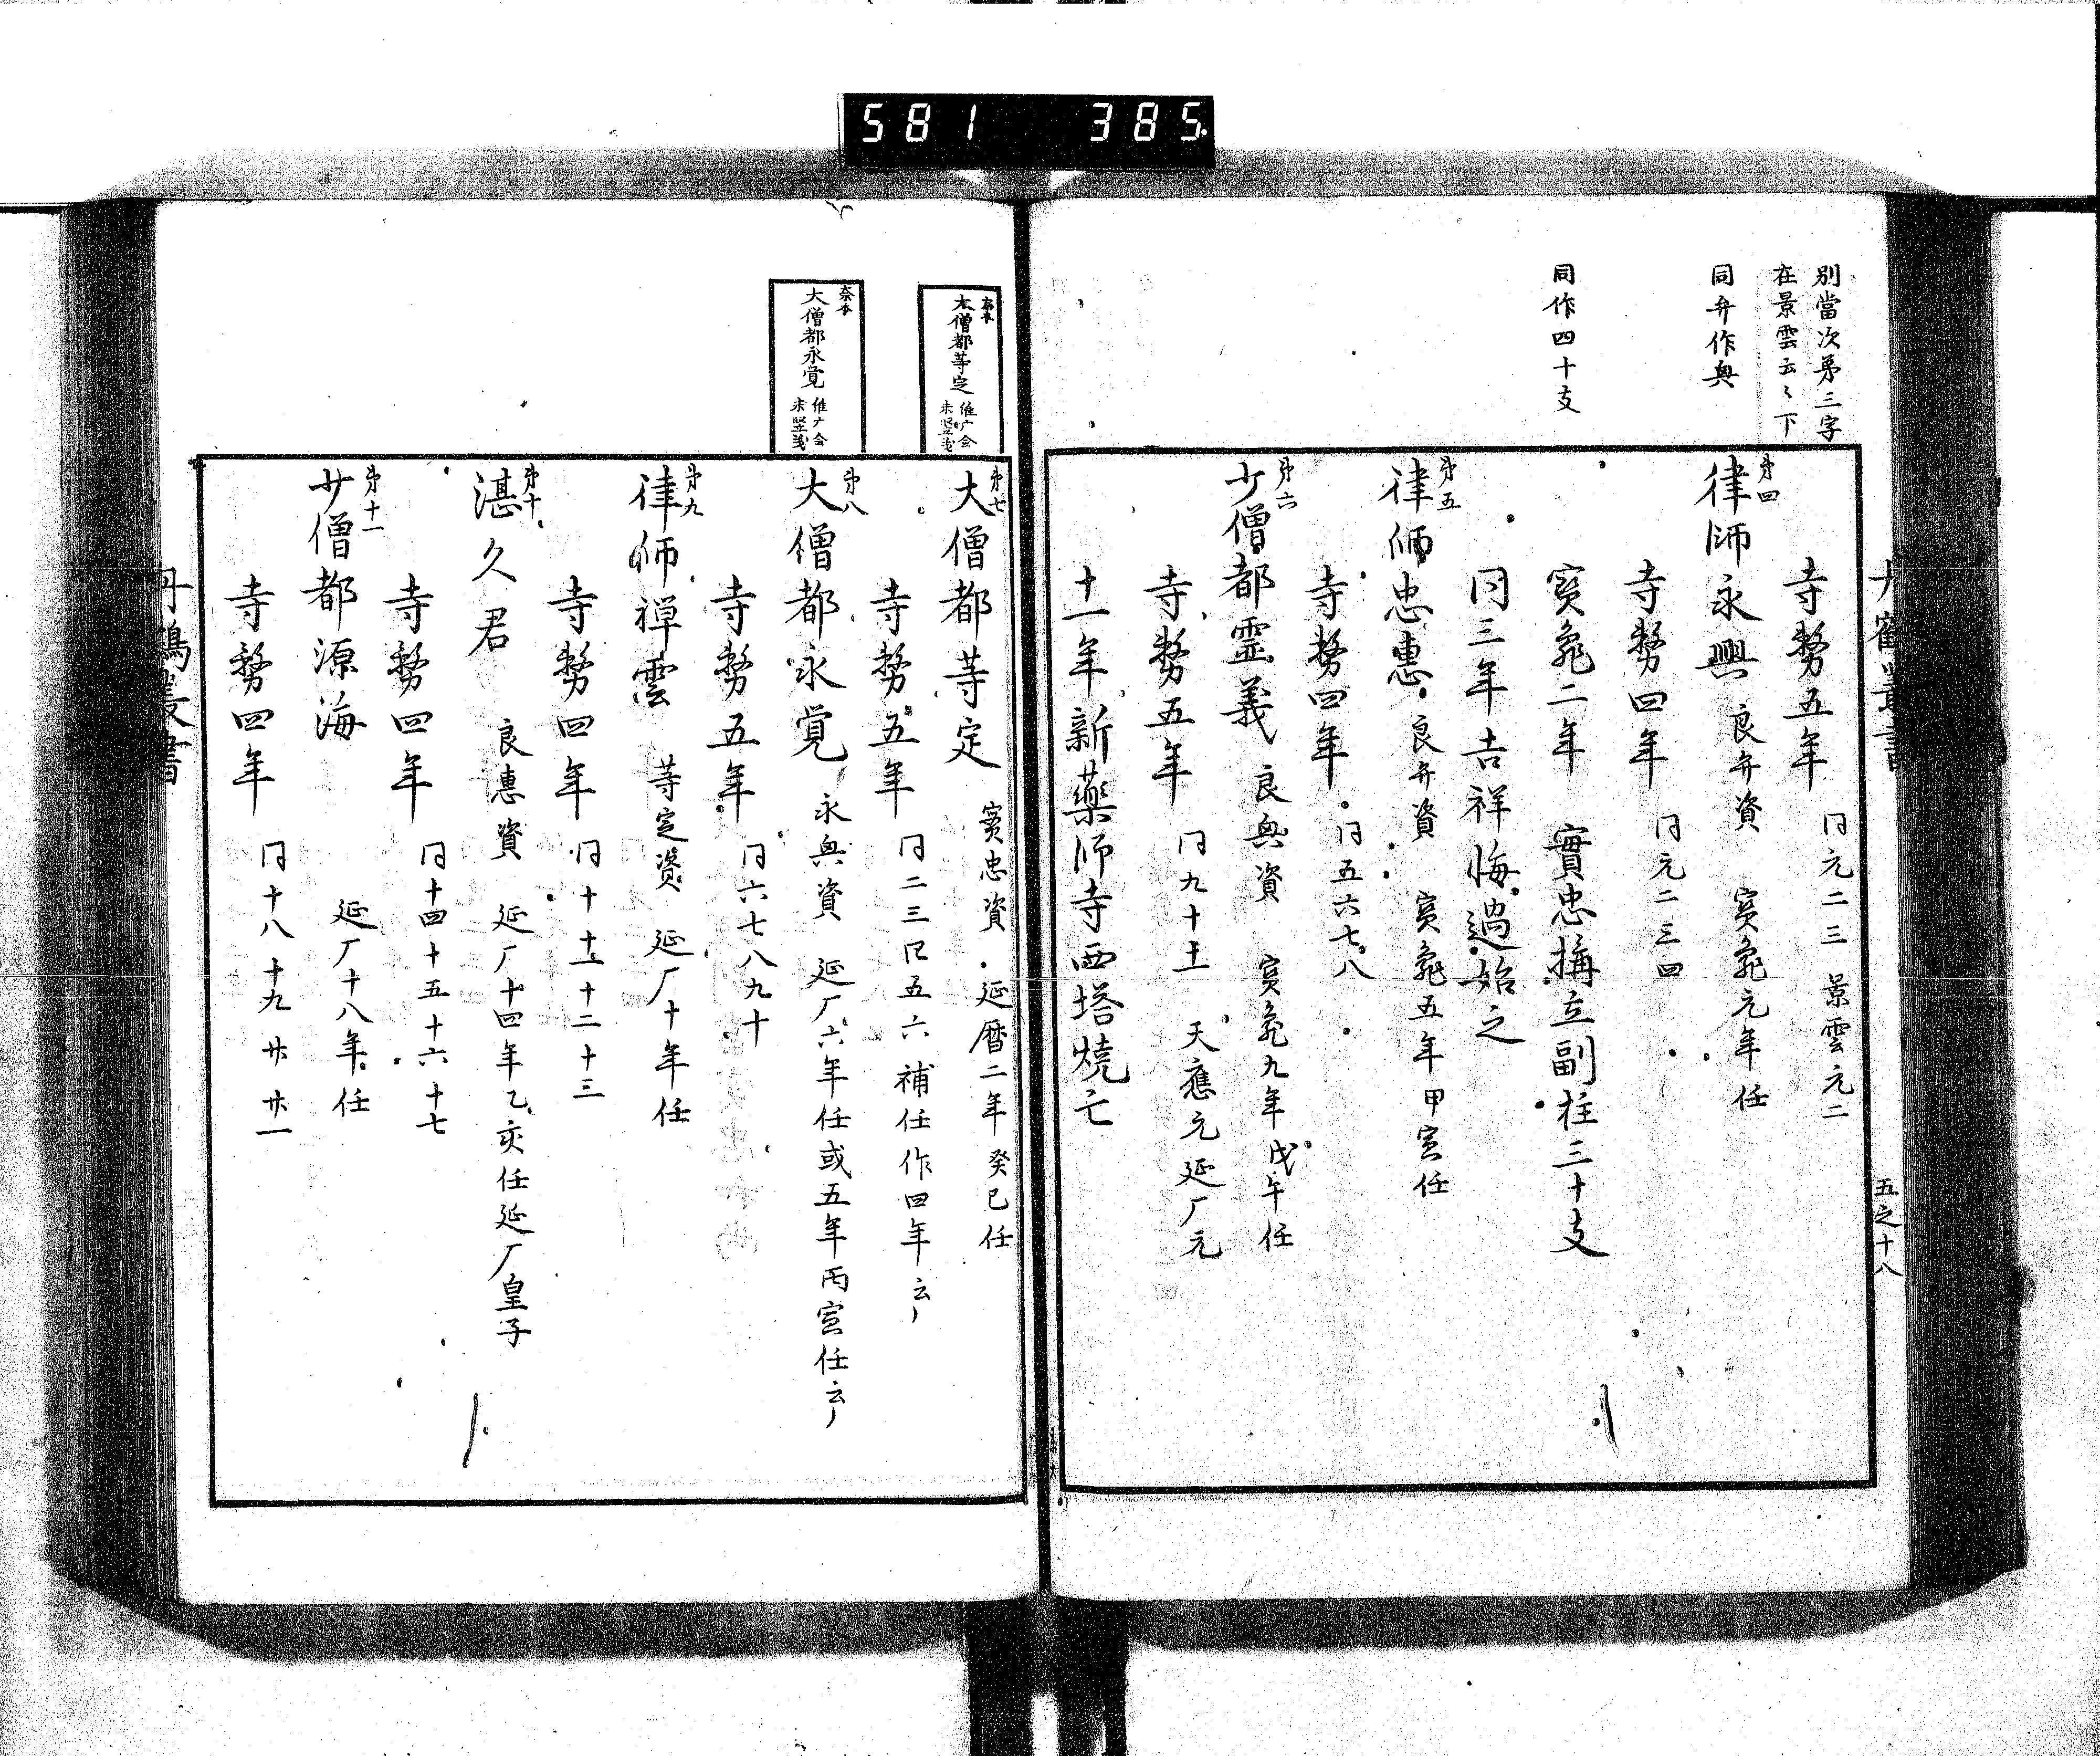 581 385
別當次第三字
在景雲云〻下
同弁作與
同作四十支
寺務五年 同元二三 景雲元二
第四
律師永興 良弁資 寳龜元年任
寺務四年 同元二三四
寳龜二年 實忠搆立副柱三十支
同三年吉祥悔過始之
第五
律師忠惠 良弁資 寳龜五年甲寅任
寺務四年 同五六七八
第六
少僧都霊義 良與資 寳龜九年戊午任
寺務五年 同九十十一 天應元 延厂元
十一年新藥師寺西塔燒亡
五之十八
大僧都等定 維厂会
奈本
大僧都永覚 維厂会
第七
大僧都等定 實忠資 延暦二年癸巳任
寺務五年 同二三四五六 補任作四年云〻
第八
大僧都永覚 永與資 延厂六年任或五年丙寅任云〻
寺務五年 同六七八九十
第九
律師禅雲 等定資 延厂十年任
寺務四年 同十十一十二十三
第十
湛久君 良惠資 延厂十四年乙亥任延厂皇子
寺務四年 同十四十五十六十七
第十一
少僧都源海 延厂十八年任
寺務四年 同十八十九廿廿一
丹鶴叢書